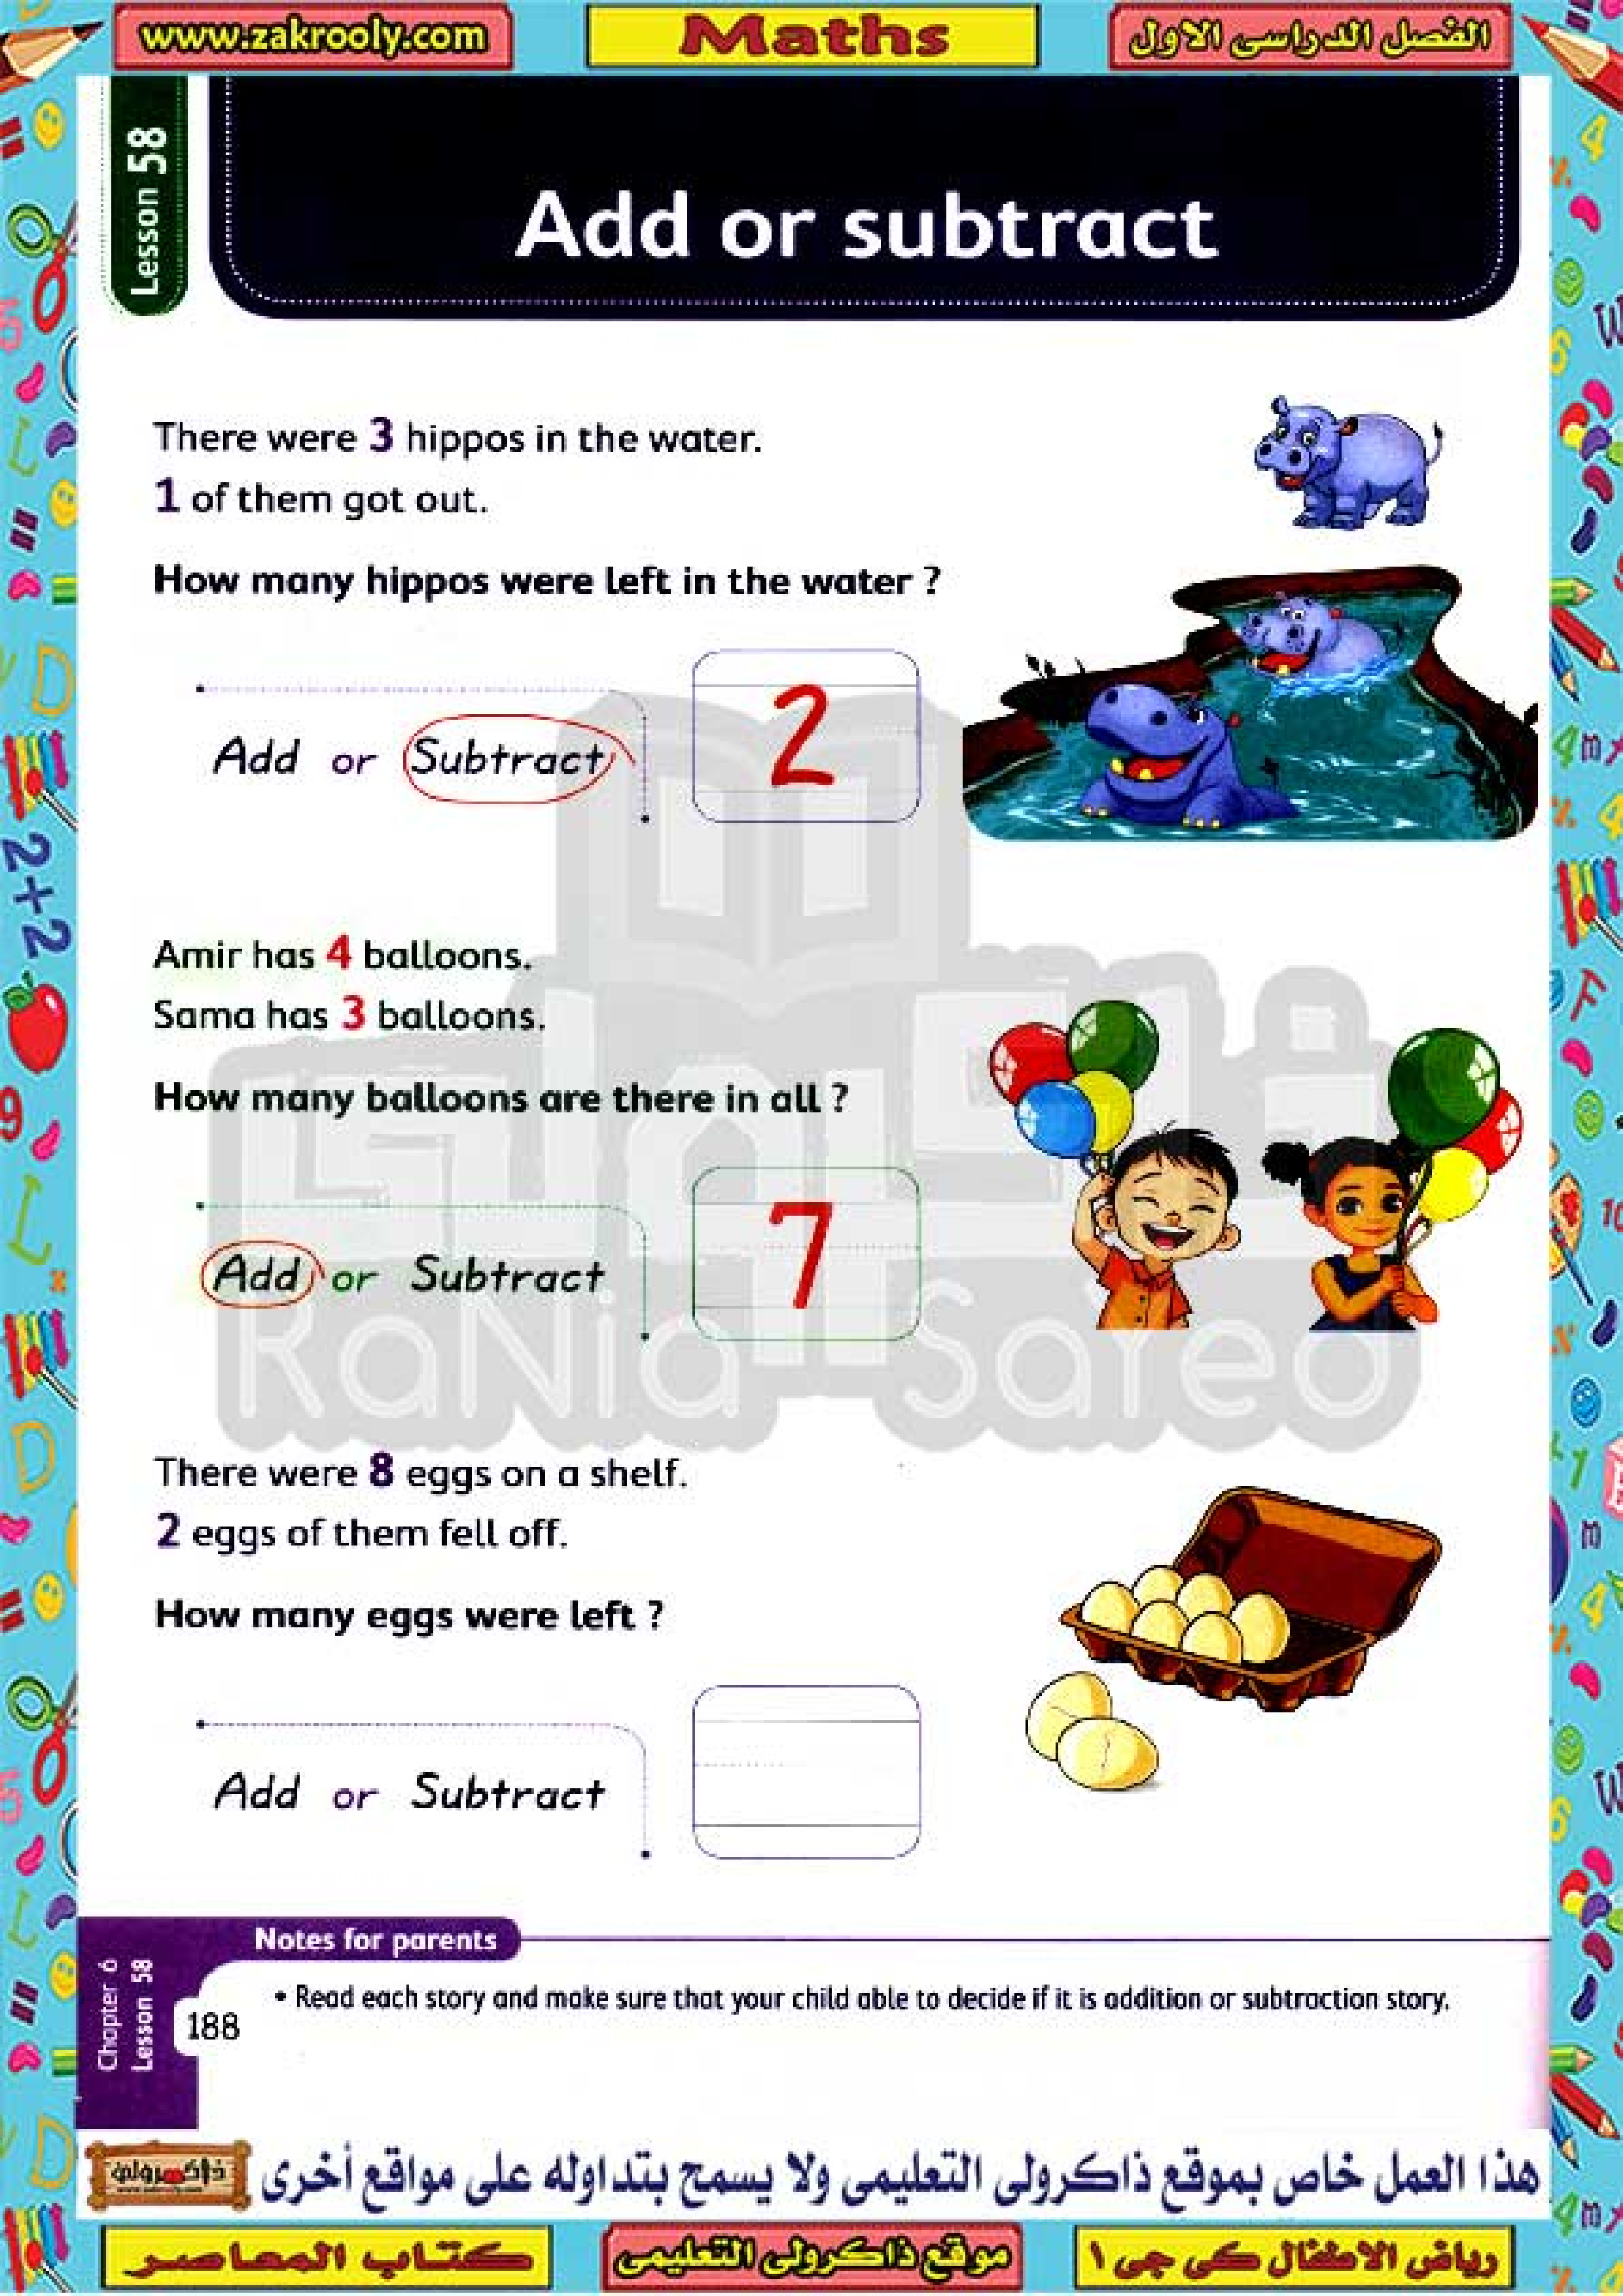 www.zakrooly.com
Maths
الفصل الدراسى الاول
Lesson 58
Add or subtract
There were 3 hippos in the water.
1 of them got out.
How many hippos were left in the water ?
Add or Subtract
2
Amir has 4 balloons.
Sama has 3 balloons.
How many balloons are there in all ?
Add or Subtract
7
ذاكرولى
RaNia Sayed
There were 8 eggs on a shelf.
2 eggs of them fell off.
How many eggs were left ?
Add or Subtract
Notes for parents
• Read each story and make sure that your child able to decide if it is addition or subtraction story.
Chapter 6
Lesson 58
188
ذاكرولى
هذا العمل خاص بموقع ذاكرولى التعليمى ولا يسمح بتداوله على مواقع أخرى
كتاب المعاصر
موقع ذاكرولى التعليمى
رياض الاطفال كى جى ١